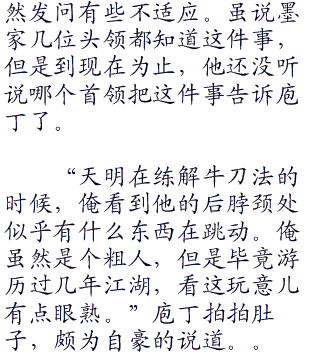 然发问有些不适应。虽说墨
家几位头领都知道这件事，
但是到现在为止，他还没听
说哪个首领把这件事告诉庖
丁了。
“天明在练解牛刀法的
时候，俺看到他的后脖颈处
似乎有什么东西在跳动。俺
虽然是个粗人，但是毕竟游
历过几年江湖，看这玩意儿
有点眼熟。”庖丁拍拍肚
子，颇为自豪的说道。。